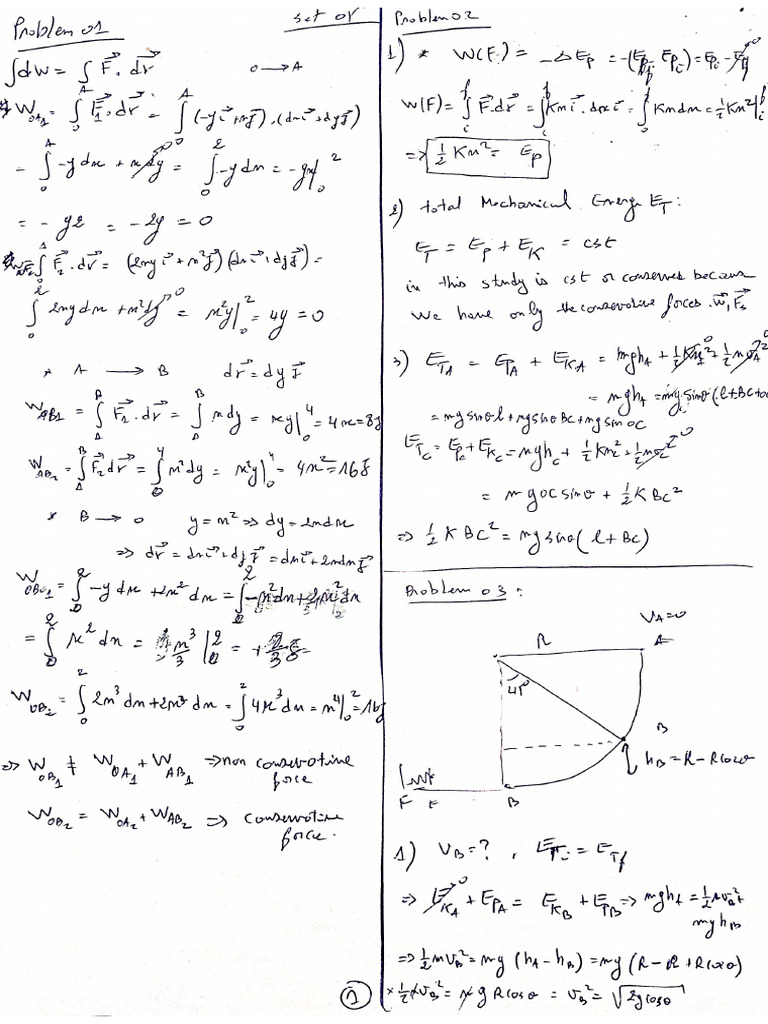 Problem 01
set 04
∫dw = ∫ F⃗ . dr⃗      0 → A
W_OA1 = ∫_0^A F⃗1 . dr⃗ = ∫_0^A (-y i⃗ + x j⃗) . (dx i⃗ + dy j⃗)
= ∫_0^A -y dx + x dy = ∫_0^2 -y dx = -yx |_0^2
= - y2 = -2y = 0
∫_0^A F⃗2 . dr⃗ = (2xy i⃗ + x² j⃗)(dx i⃗ + dy j⃗) =
∫_0^2 2xy dx + x² dy = x²y |_0^2 = 4y = 0
* A → B      dr⃗ = dy j⃗
W_AB1 = ∫_A^B F⃗1 . dr⃗ = ∫_A^B x dy = xy |_0^4 = 4x = 8J
W_AB2 = ∫_A^B F⃗2 dr⃗ = ∫_0^4 x² dy = x²y |_0^4 = 4x² = 16J
* B → 0      y = x² => dy = 2x dx
=> dr⃗ = dx i⃗ + dy j⃗ = dx i⃗ + 2x dx j⃗
= ∫_0^2 -y dx + 2x² dx = ∫_0^2 -x² dx + 2x² dx
= ∫_0^2 x² dx = x³/3 |_0^2 =
W_OB2 = ∫_0^2 2x³ dx + 2x³ dx = ∫_0^2 4x³ dx = x⁴ |_0^2 = 16J
=> W_OB1 ≠ W_OA1 + W_AB1 => non conservative
force
W_OB2 = W_OA2 + W_AB2 => conservative
force.
Problem 02
1) * W(F) = -ΔEp = -(Ep_f - Ep_i) = Ep_i - Ep_f
W(F) = ∫_i^f F⃗ . dr⃗ = ∫_i^f Kx i⃗ . dx i⃗ = ∫_i^f Kx dx = ½ Kx² |_i^f
=> ½ Kx² = Ep
2) total Mechanical Energie E_T :
E_T = E_P + E_K = cst
in this study is cst or conserved because
we have only the conservative forces. w⃗, F⃗s
3) E_TA = E_PA + E_KA = mgh_A + ½ Kx² + ½ mv_A²
= mgh_A = mg sinθ (l + BC + OC
= mg sinθ l + mg sinθ BC + mg sinθ OC
E_TC = E_PC + E_KC = mgh_C + ½ Kx² + ½ mv_C²
= mg OC sinθ + ½ K BC²
=> ½ K BC² = mg sinθ ( l + BC)
Problem 03 :
V_A = 0
R
A
45°
B
h_B = R - R cosθ
F
E
B
1) V_B = ? , E_Ti = E_Tf
=> E_KA + E_PA = E_KB + E_PB => mgh_A = ½ m v_B² +
mg h_B
=> ½ m v_B² = mg (h_A - h_B) = mg (R - R + R cosθ)
* ½ m v_B² = m g R cosθ = v_B² = √(2g cosθ)
1